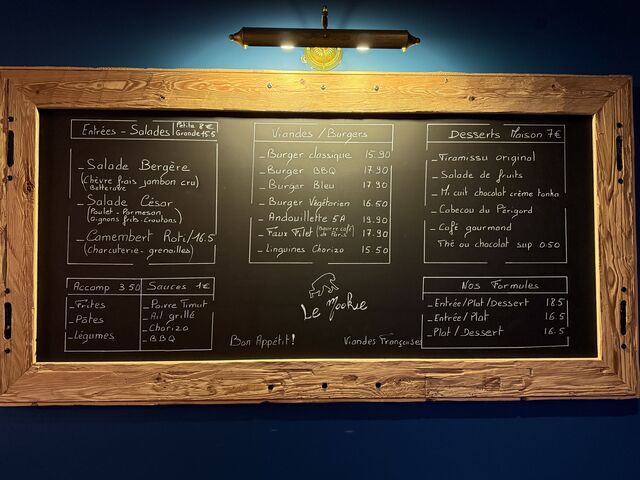 Entrées - Salades
Petite 8€
Grande 15.5
_ Salade Bergère
(Chèvre frais jambon cru)
Betterave
_ Salade César
(Poulet - Parmesan
Oignons frits - Croutons)
_ Camembert Roti/16.5
(Charcuterie - grenailles)
Accomp 3.50
_ Frites
_ Pâtes
_ Légumes
Sauces 1€
_ Poivre Timut
_ Ail grillé
_ Chorizo
_ BBQ
Viandes / Burgers
_ Burger classique 15.90
_ Burger BBQ 17.90
_ Burger Bleu 17.90
_ Burger Végétarien 16.50
_ Andouillette 5A 19.90
_ Faux Filet (Beurre café de Paris) 17.90
_ Linguines Chorizo 15.50
Le Mookie
Bon Appétit!
Viandes Françaises
Desserts Maison 7€
_ Tiramissu original
_ Salade de fruits
_ Mi cuit chocolat crème tonka
_ Cabecou du Périgord
_ Café gourmand
Thé ou chocolat sup 0.50
Nos Formules
_ Entrée/Plat/Dessert 18.5
_ Entrée/Plat 16.5
_ Plat/Dessert 16.5